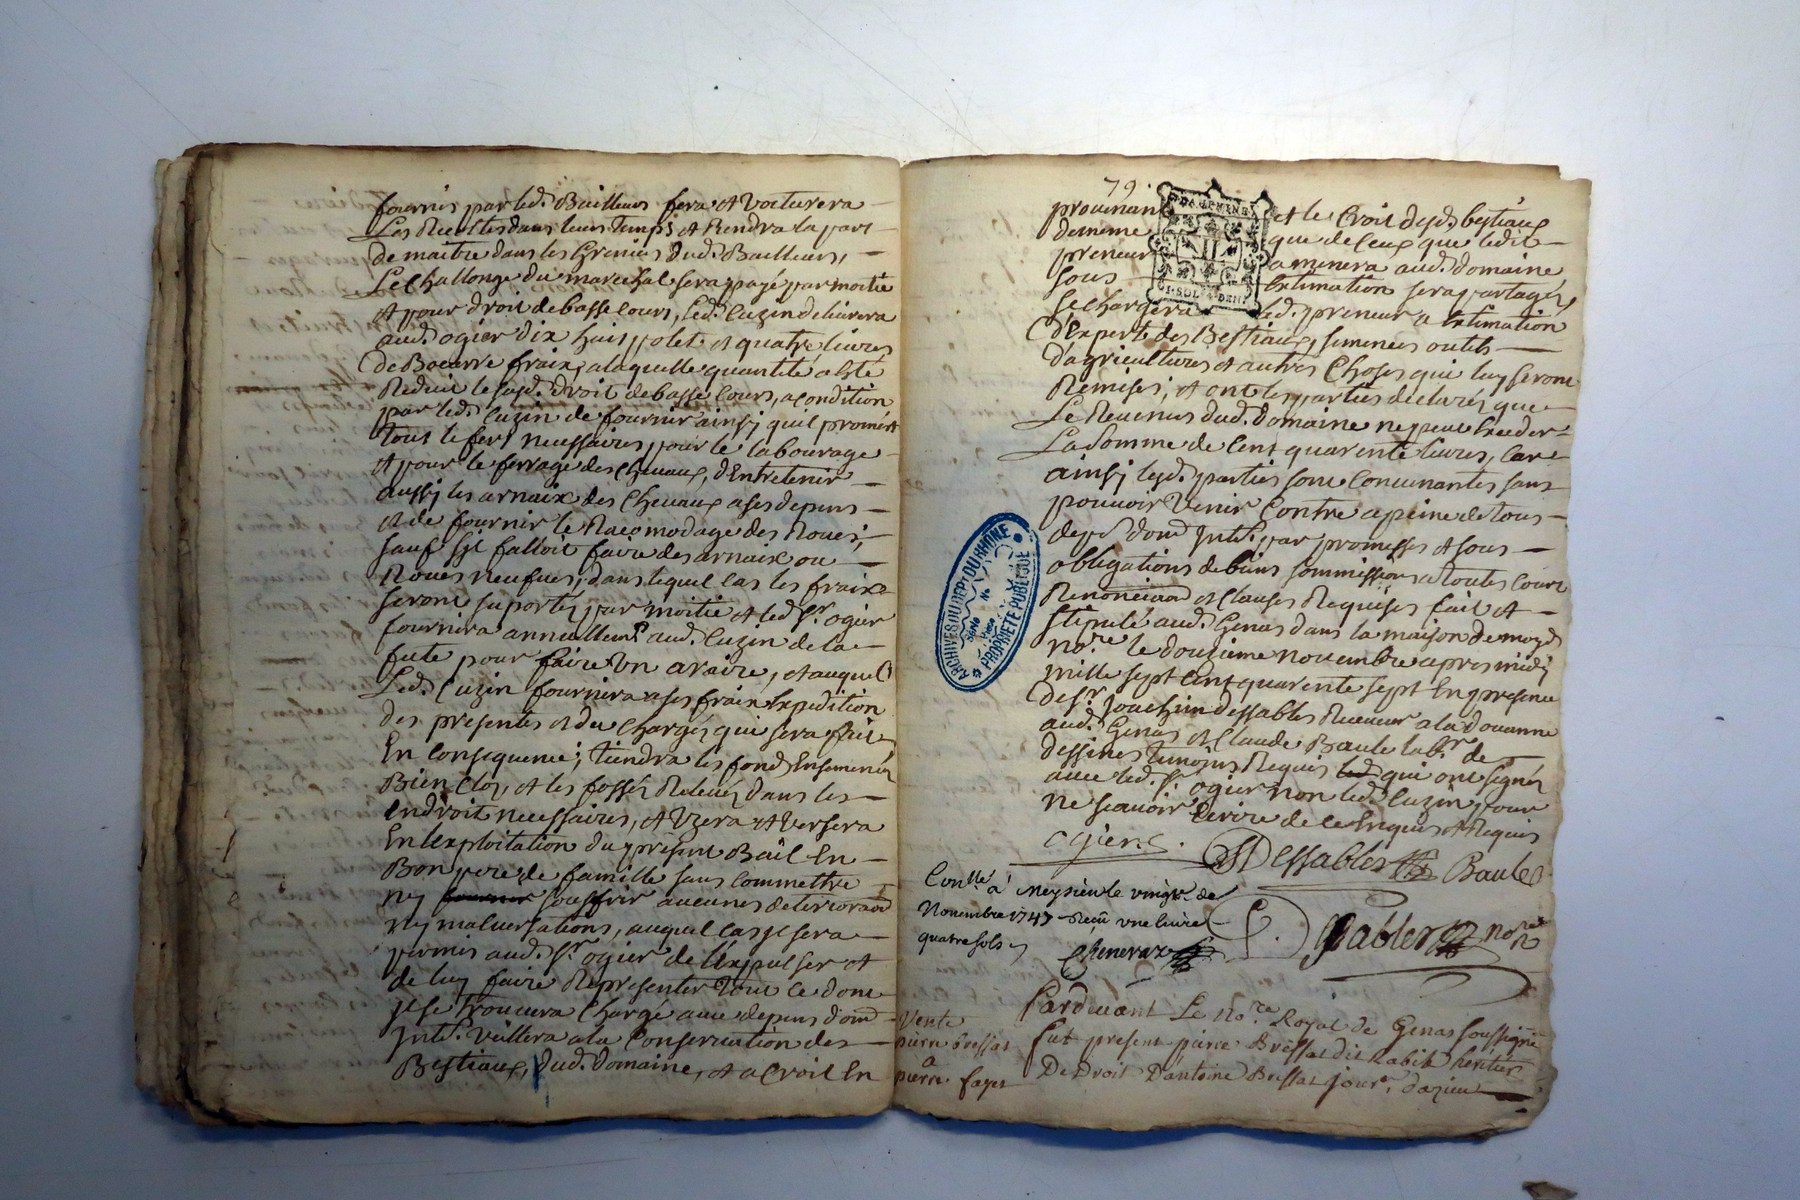 fournis par led. Bailleurs fera et voiturera
Les Recoltes dans leurs Temps et Rendra la part
de maitre dans les Greniers dud. Bailleurs,
Le challonge du marechal sera payé par moitié
et pour droit de basse cours, led. Cuzin delivrera
aud. ogier dix huit polets et quatre livres
De Boeurre fraix, a laquelle quantité a été
Reduit le susd. droit de basse cours, a condition
par led. Cuzin de fournir ainsy quil promert
tous le fers necessaires pour le labourage
et pour le ferrage des chevaux, d'Entretenir
aussy les arnaix des chevaux a ses depens
et de fournir le Racomodage des Roues,
sauf syl falloit faire des arnaix ou
Roues neufues, dans lequel cas les fraix
seront suportés par moitié et led. Sr. ogier
fournira annuellemt. aud. Cuzin de la
fute pour faire un araire, et auquel
Led. Cuzin fournira a ses fraix Expedition
des presentes et du chargés qui sera fait
En consequence; tiendra les fonds Ensemencés
Bien Clos, et les fossés Relevés dans les
endroit necessaires, et Vzera et versera
En l'exploitation du présent Bail En
Bon pere de famille sans commettre
ny souffrir aucunes deterioraon
ny malversations, auquel cas jl sera
permis aud. Sr. ogier de l'expulser et
de luy faire Representer tout ce dont
jl se trouvera chargé avec depens dom
Jntts. veillera a la Conservation des
Bestiaux, dud. Domaine, et a croit En
79
provenant et le Croit desd. bestiaux
de meme que de ceux que ledit
preneur amenera aud. domaine
sous Estimation sera partagés,
se chargera led. preneur a Estimation
D'Experts des Bestiaux, semences outils
d'agricultures et autres choses que luy seront
Remises; et ont les parties déclarés que
Le Revenus dud. Domaine ne peut Exceder
La Somme de Cent quarente livres, Car
ainsy lesd. parties sont Convenantes sans
pouvoir Venir Contre a peine de tous
depens dom Jntts. par promesses et sous
obligations de biens soummissions a toutes cours
Renonciaons et Clauses Requises fait et
stipulé aud. Genas dans la maison de moyd.
nore. le douzieme novembre apres midy
mille sept cent quarente sept En presence
De Sr. Joachim dessables Receveur a la douanne
aud. Genas et Claude Baule labr. de
dessines temoins Requis qui ont signés
avec led. Sr. ogier non led. Cuzin pour
ne scavoir Ecrire de ce Enquis et Requis
ogier.
Dessables Baule
Conllé. a Meysieu le vingt. de
Novembre 1747 Reçu une livre
quatre sols
Chenevaz
Sablon nore
Pardevant Le nore. Royal de Genas soussigné
fut present pierre Bressat dit habit heritier
De Droit D'antoine Bressat jourr. d'azieu
Vente
pierre bressat
a
pierre fayet
DAUPHINE
II
I. SOL 4 DEN.
ARCHIVES DU DEPT DU RHÔNE
PROPRIÉTÉ PUBLIQUE